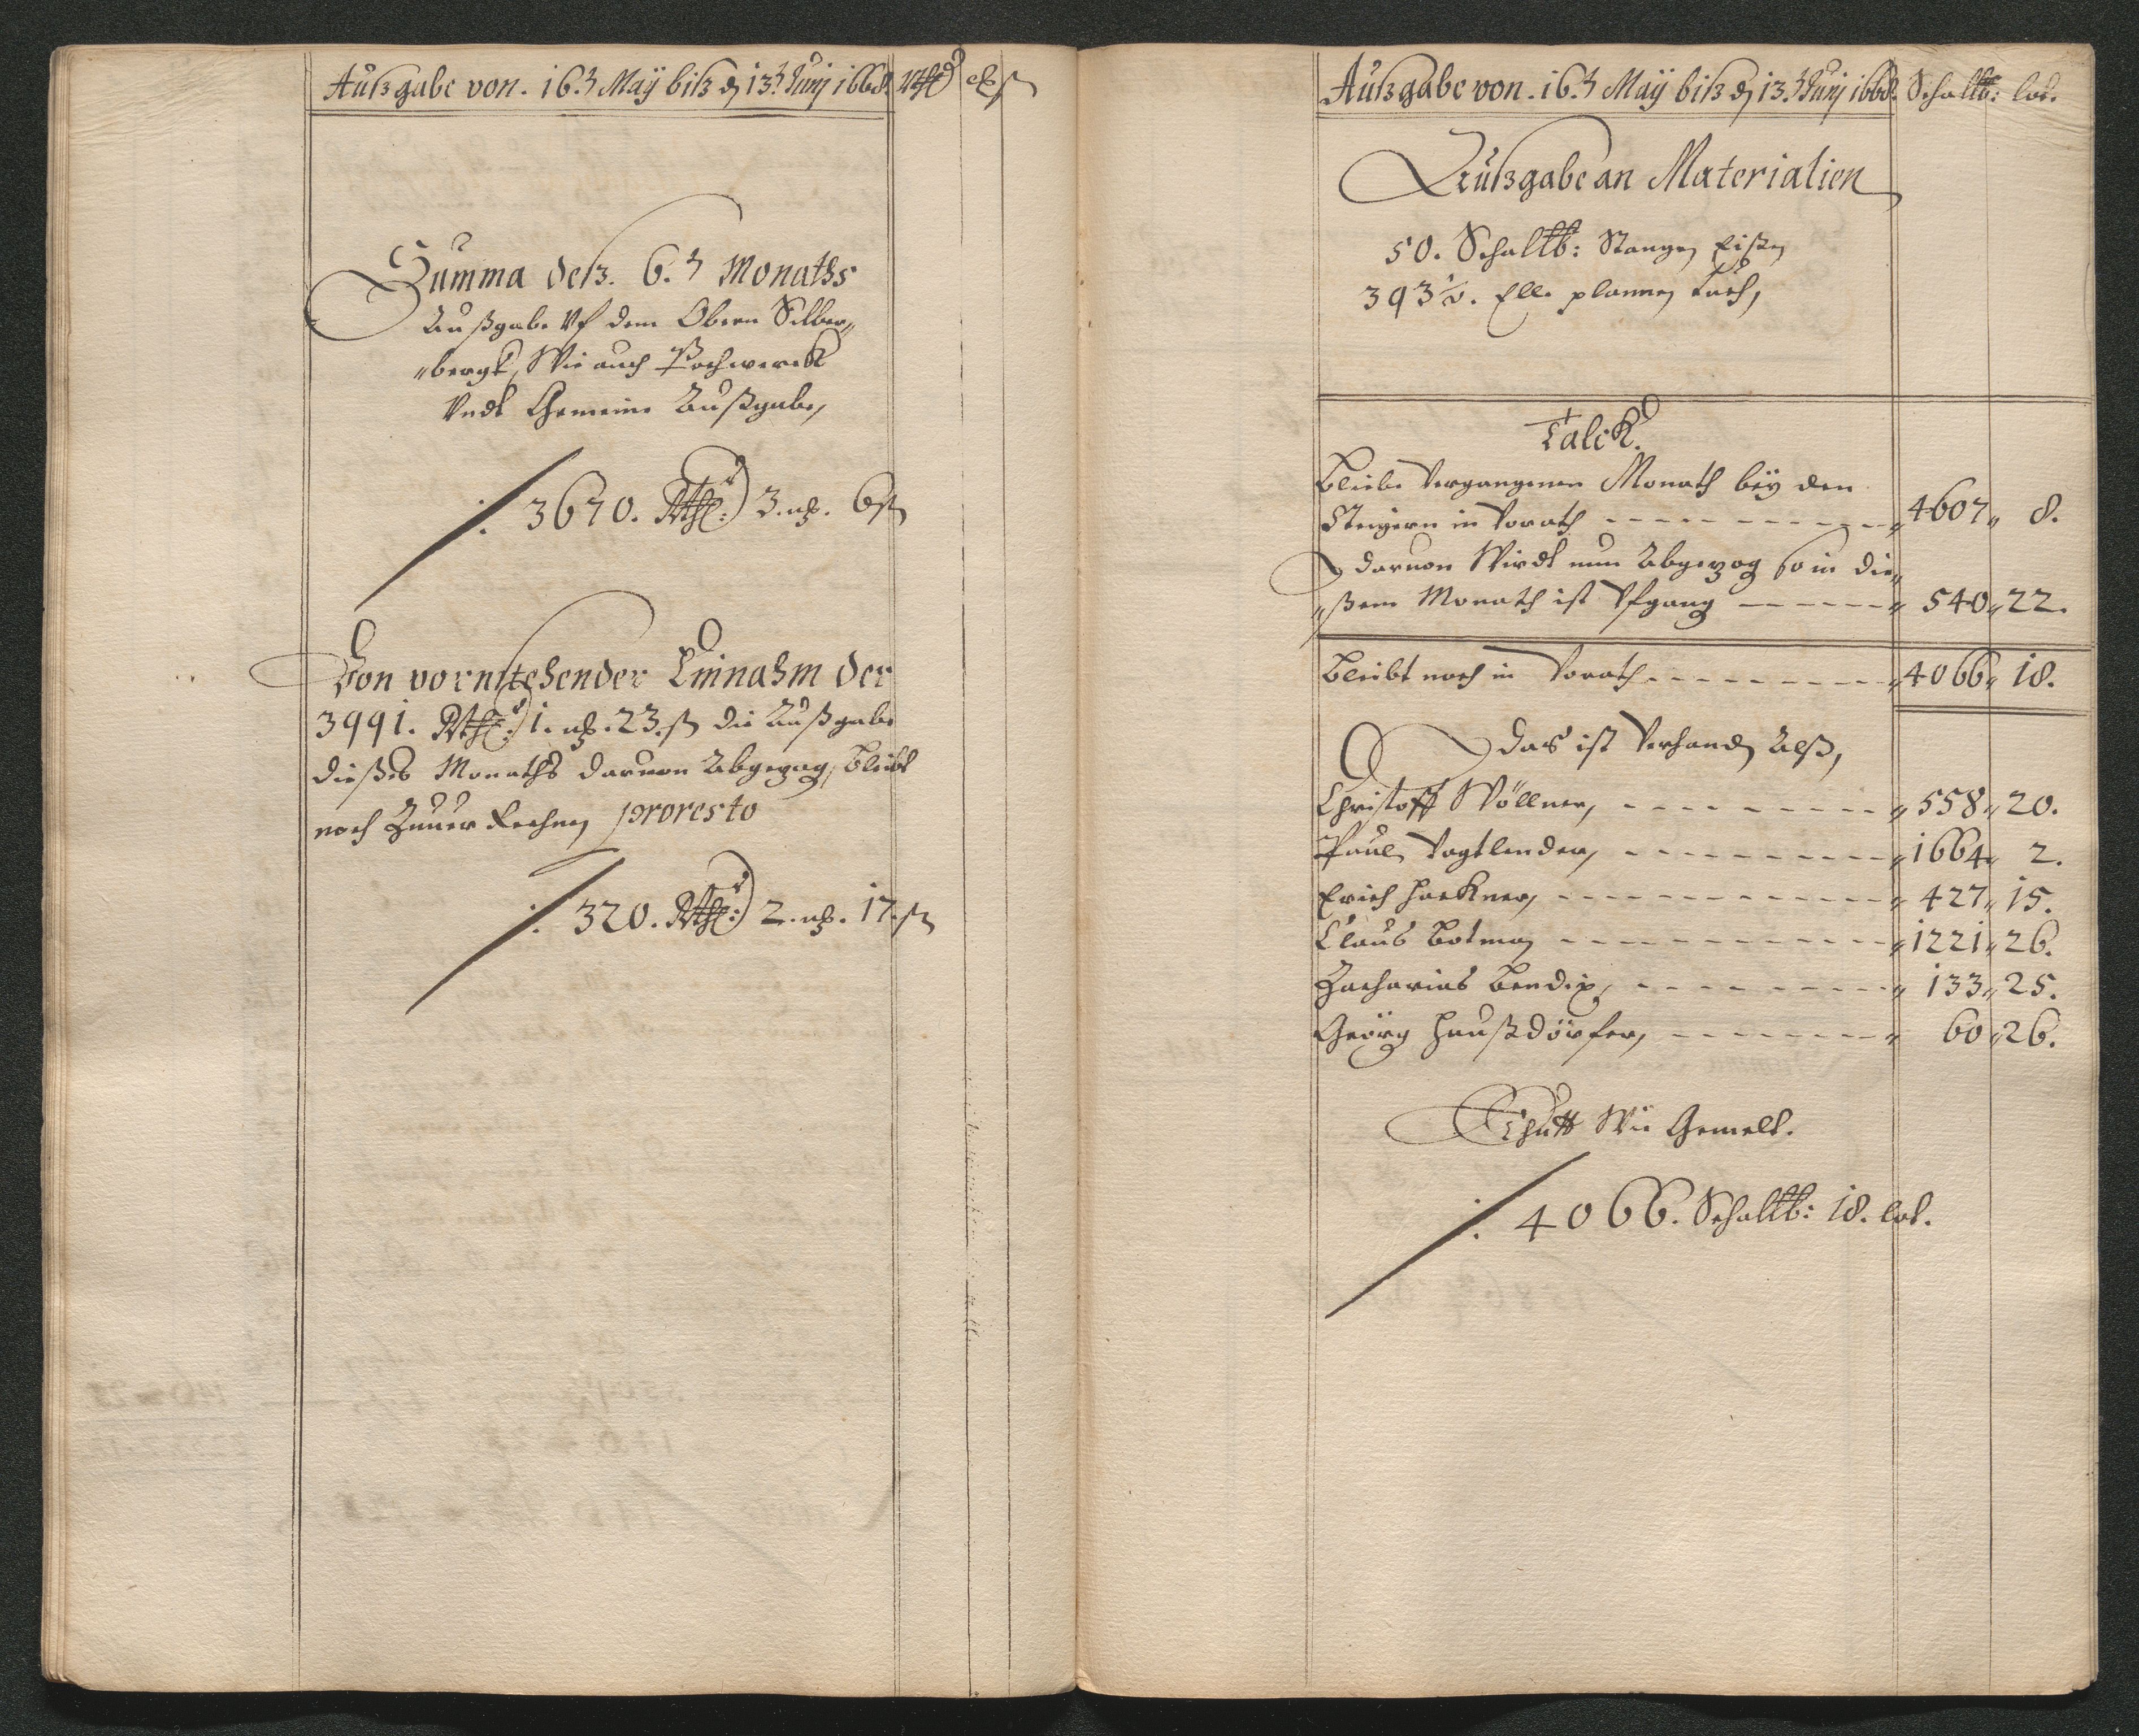 Außgabe von. 16.t Maÿ biß d 13.t Junj 1668. Rthlr
Summa deß. 6.t Monaths
Außgabe Vf dem Obern Silber„
„bergk, Wie auch Pochwerck
Vndt Gemeine Außgabe,
⁒ 3670. Rthlr: 3. mß. 6 ß
Von vornstehender Einnahm der
3991. Rthlr: 1. mß. 23. ß die Außgabe
dießes Monaths daruon Abgezog, bleibt
noch Zuuer Rechnen pro resto
⁒ 320. Rthlr: 2. mß. 17. ß
Außgabe von. 16.t Maÿ biß d 13.t Junj 1668. Schallb: lot.
Außgabe an Materialien
50. Schallb: Stangen Eißen
393½. Elle plannen Tuch,
Talck.
Bliebe Vergangenen Monath beÿ den
Steigern in Vorath „4607„ 8.
daruon Wirdt nun Abgezog so in die„
„ßem Monath ist Vfgang „ 540„ 22.
Bleibt noch in Vorath „4066„ 18.
Das ist Verhanden Alß,
Christoff Wöllner, „ 558„ 20.
Paul Vogtlender, „1664„ 2.
Erich Hackner, „ 427„ 15.
Claus Botman „1221„ 26.
Zacharias Bendix, „ 133„ 25.
Geörg Haußdörfer, „ 60„ 26.
Thutt Wie Gemelt.
⁒ 4066. Schallb: 18. lot.